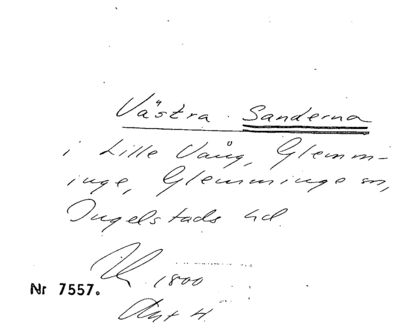 Västra Sanderna
i Lille Vång, Glemm-
inge, Glemminge sn,
Ingelstads hd.
1800
Nr 7557.